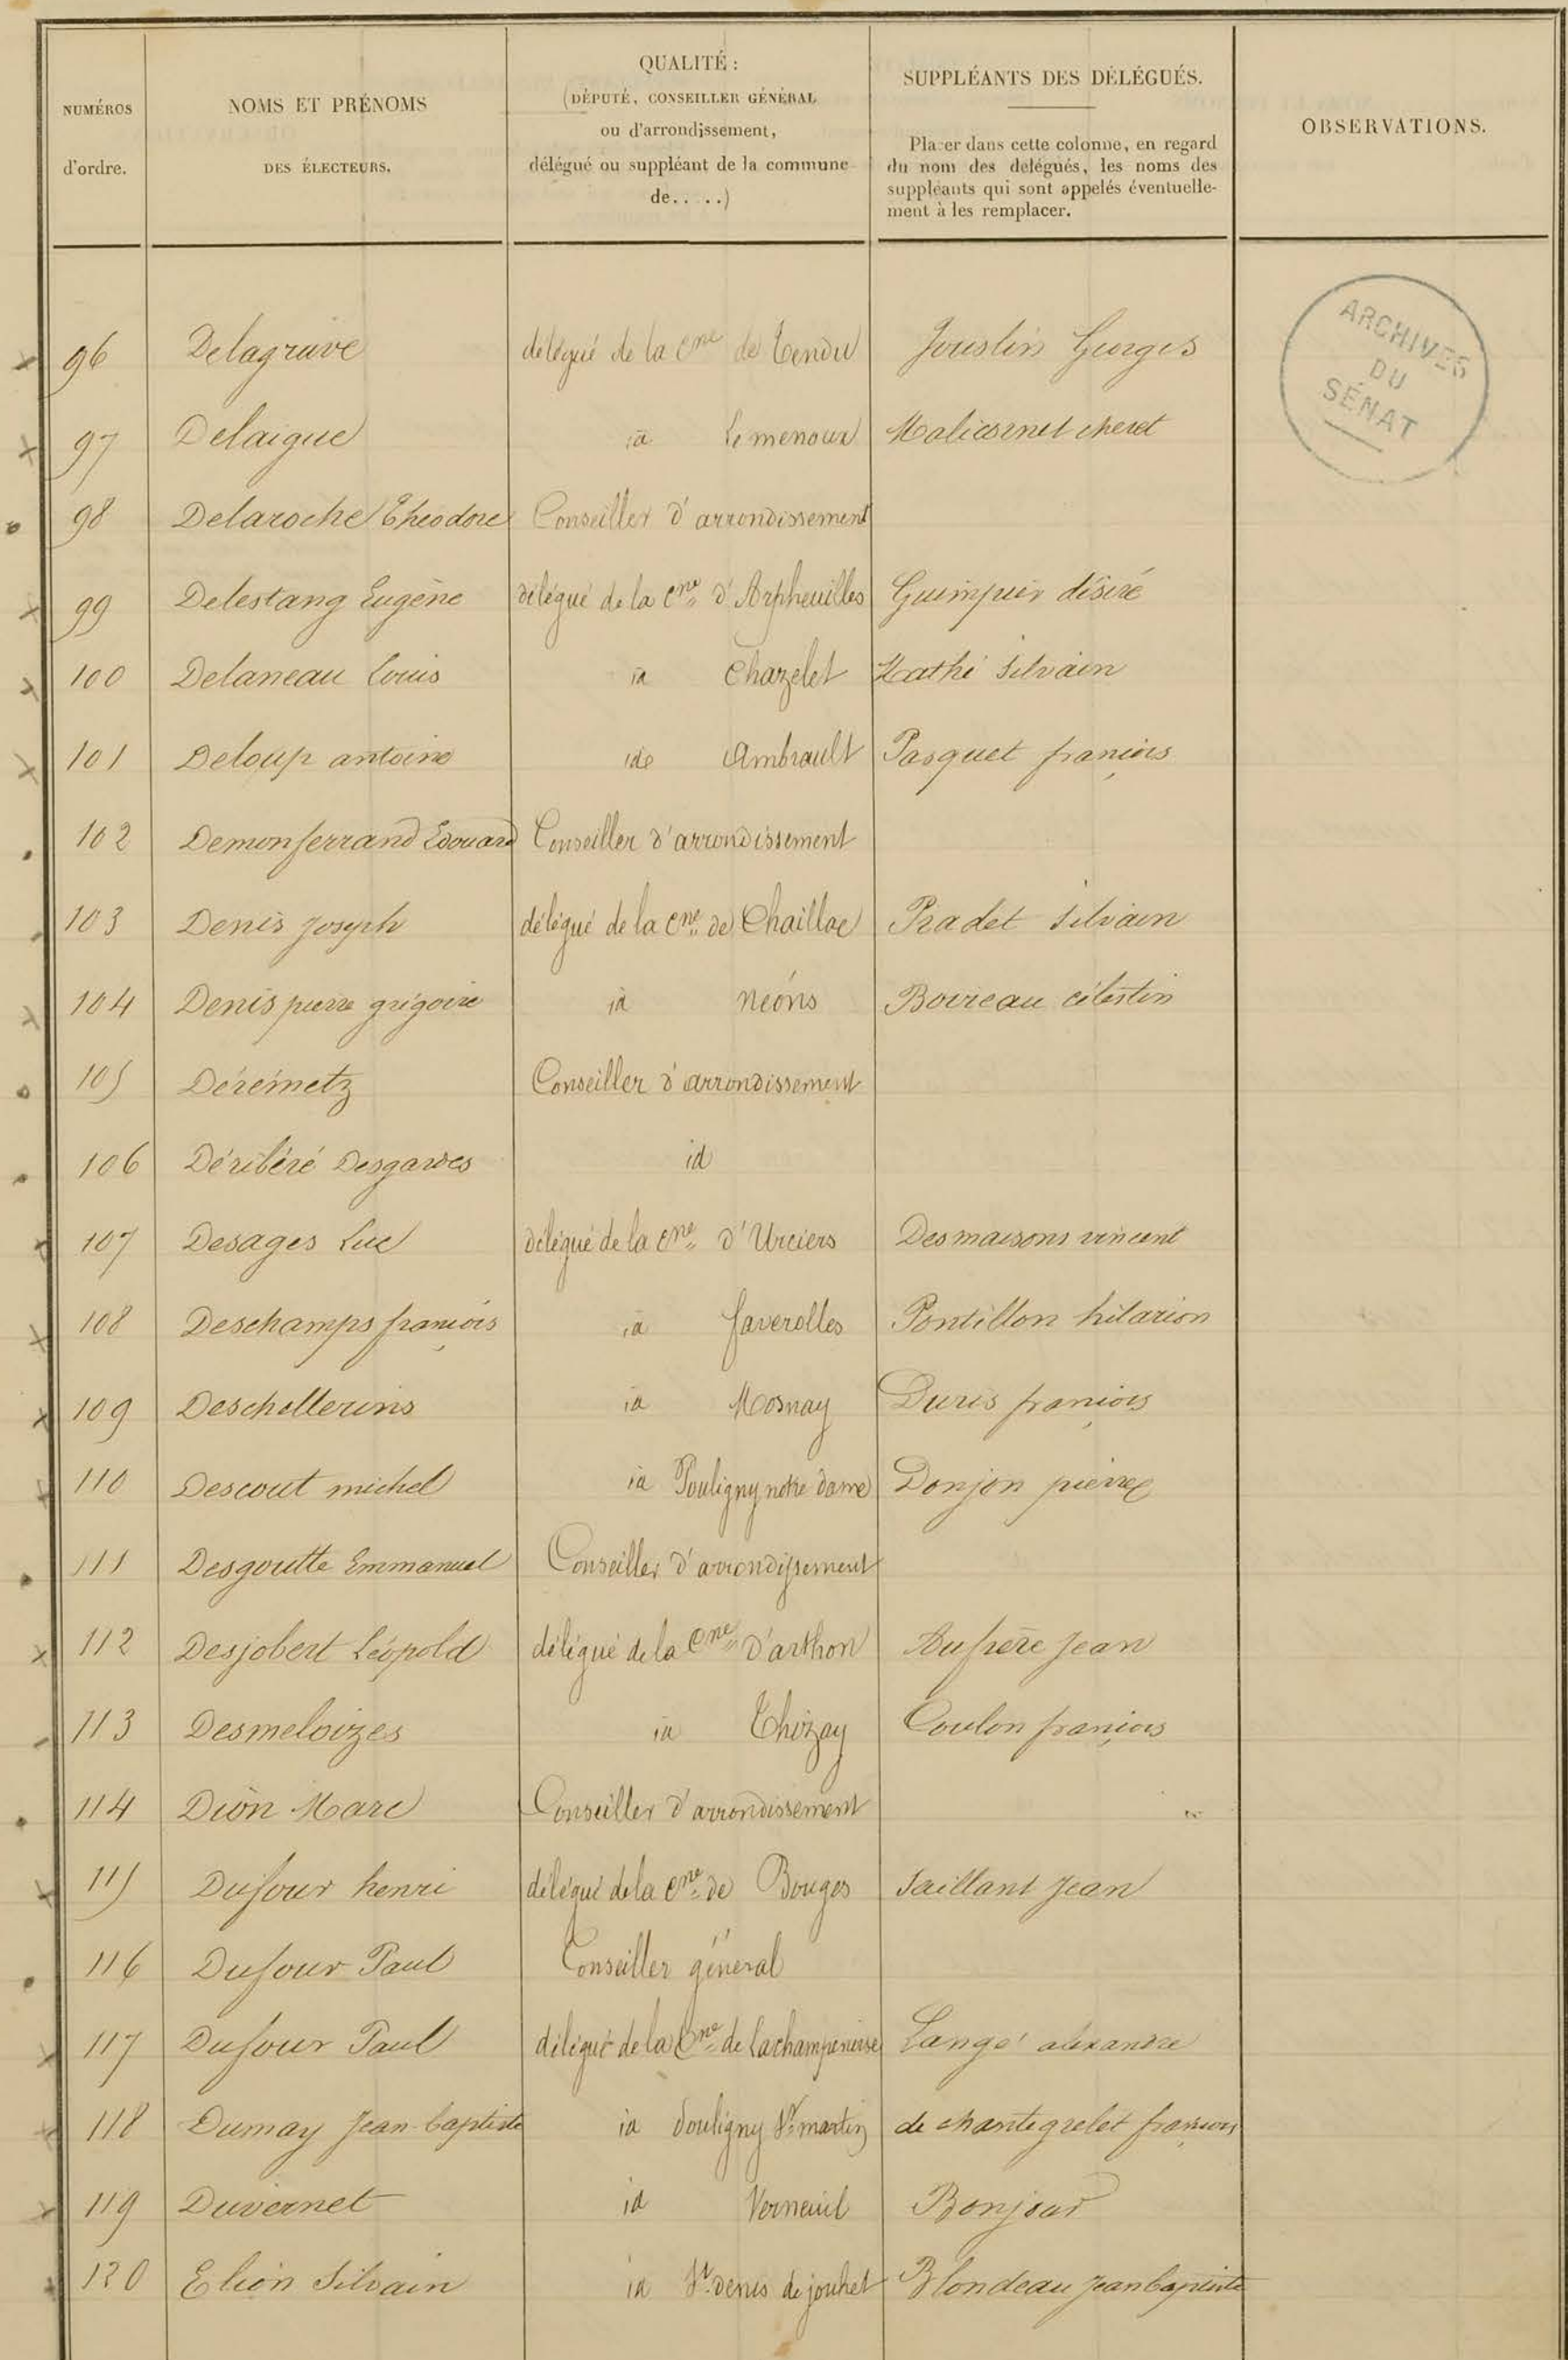 NUMÉROS
d'ordre.
NOMS ET PRÉNOMS
DES ÉLECTEURS.
QUALITÉ :
(DÉPUTÉ, CONSEILLER GÉNÉRAL
ou d'arrondissement,
délégué ou suppléant de la commune
de.. ...)
SUPPLÉANTS DES DÉLÉGUÉS.
Placer dans cette colonne, en regard
du nom des délégués, les noms des
suppléants qui sont appelés éventuelle-
ment à les remplacer.
OBSERVATIONS.
ARCHIVES
DU
SÉNAT
96 Delagrave délégué de la Cne de Tendu Jouslin Georges
97 Delaigue id Le menoux Malicornet
98 Delaroche Théodore Conseiller d'arrondissement
99 Delestang Eugène délégué de la Cne d'Arpheuilles Guimpier désiré
100 Delaneau Louis id Chazelet Mathé Silvain
101 Deloup antoine id Ambrault Pasquet françois
102 Demonferrand Edouard Conseiller d'arrondissement
103 Denis Joseph délégué de la Cne de Chaillac Pradet Silvain
104 Denis pierre grégoire id néons Boireau célestin
105 Dérémetz Conseiller d'arrondissement
106 Déribéré Desgardes id
107 Desages Luc délégué de la Cne d'Urciers Desmaisons vincent
108 Deschamps françois id faverolles Pontillon hilarion
109 Deschellerins id Mosnay Duris françois
110 Descout michel id Pouligny notre dame Donjon pierre
111 Desgoutte Emmanuel Conseiller d'arrondissement
112 Desjobert Léopold délégué de la Cne d'arthon Aufrère Jean
113 Desmeloizes id Thizay Coulon françois
114 Dion Marc Conseiller d'arrondissement
115 Dufour henri délégué de la Cne de Bouges Saillant Jean
116 Dufour Paul Conseiller général
117 Dufour Paul délégué de la Cne de Lachampenoise Langé alexandre
118 Dumay Jean-baptiste id Pouligny St martin de chantegrelet françois
119 Duvernet id Verneuil Bonjour
120 Elion Silvain id St denis de jouhet Blondeau Jean baptiste